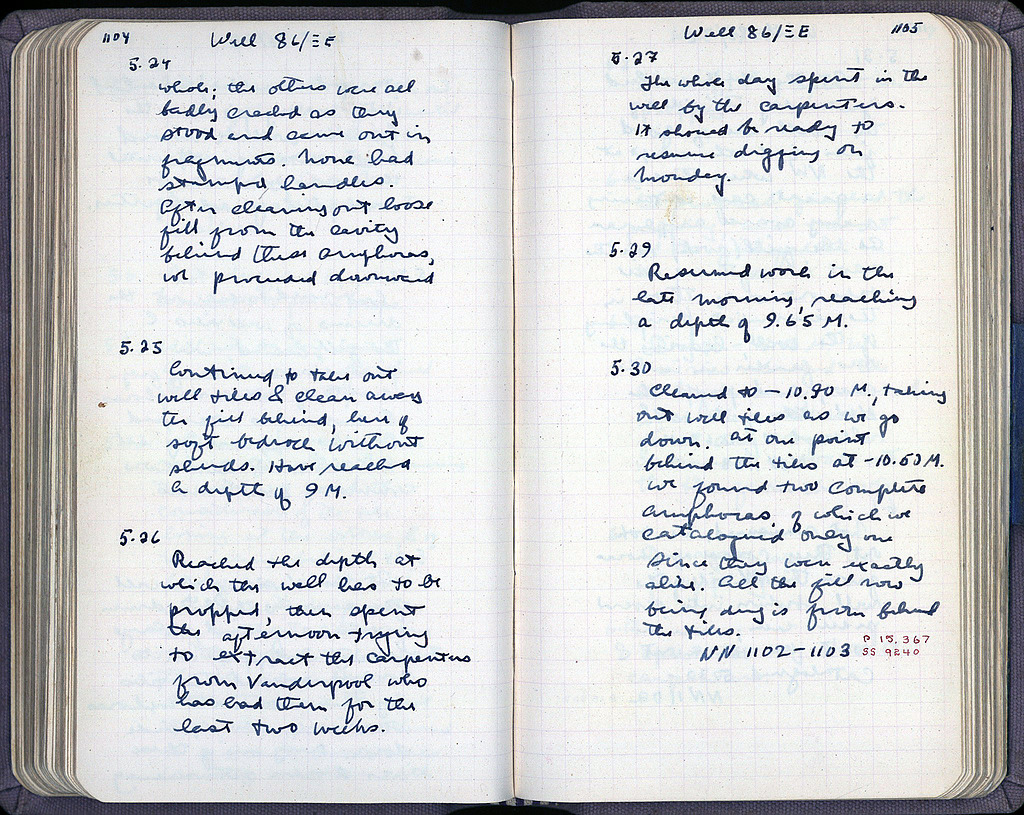 1104
Well 86/ΞE
5.24
whole; the others were all
badly cracked as they
stood and came out in
fragments. None had
stamped handles.
After cleaning out loose
fill from the cavity
behind these amphoras,
we proceeded downward
5.25
Continued to take out
well tiles & clean away
the fill behind, here of
soft bedrock without
sherds. Have reached
a depth of 9 M.
5.26
Reached the depth at
which the well has to be
propped, then spent
the afternoon trying
to extract the carpenters
from Vanderpool who
has had them for the
last two weeks.
Well 86/ΞE
1105
5.27
The whole day spent in the
well by the carpenters.
It should be ready to
resume digging on
Monday.
5.29
Resumed work in the
late morning, reaching
a depth of 9.65 M.
5.30
Cleaned to -10.80 M., taking
out well tiles as we go
down. At one point
behind the tiles at -10.50 M.
we found two complete
amphoras, of which we
catalogued only one
since they were exactly
alike. All the fill now
being dug is from behind
the tiles.
NN 1102-1103
P 15,367
SS 9240